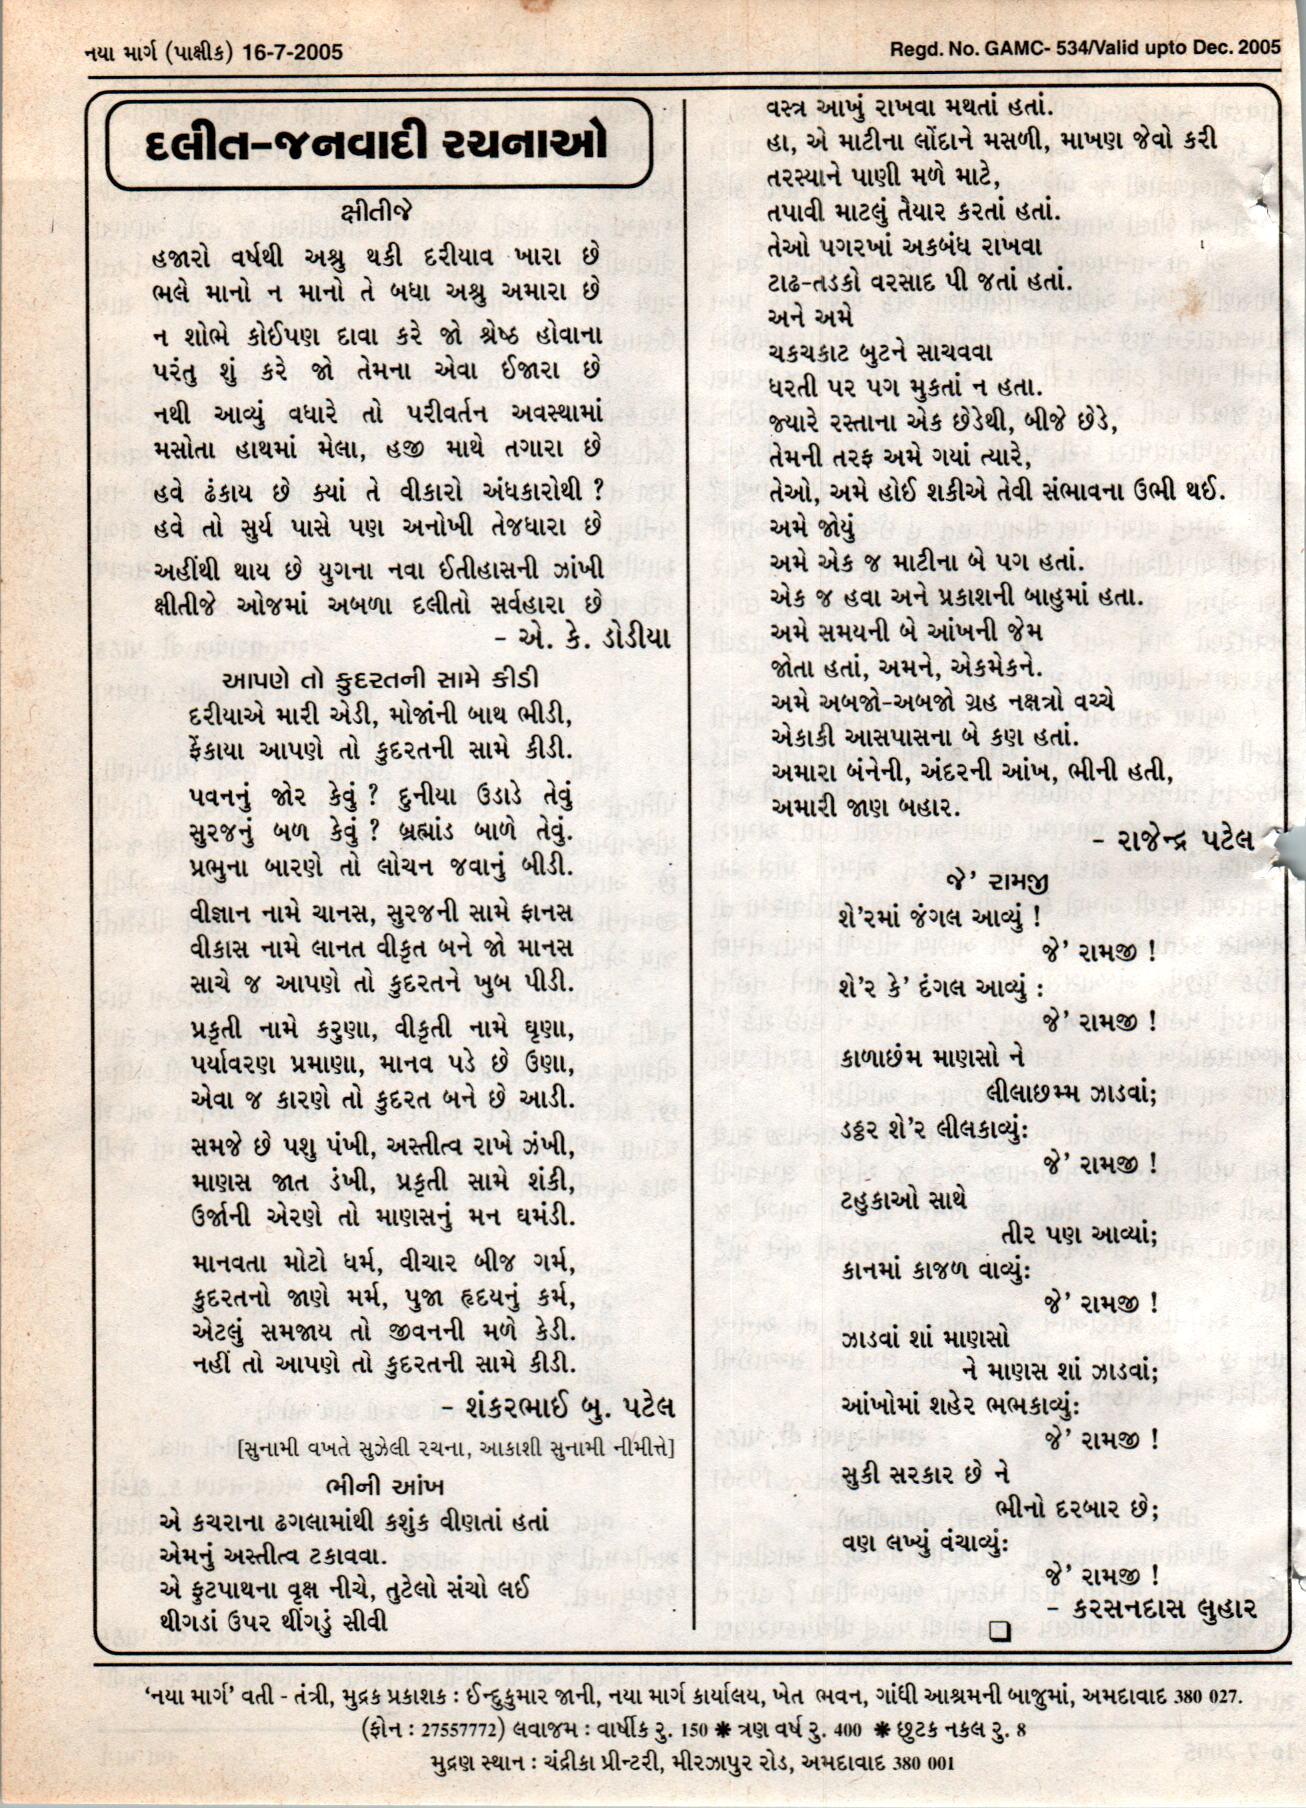 નયા માર્ગ (પાક્ષીક) 16-7-2005
Regd. No. GAMC- 534/Valid upto Dec. 2005
દલીત-જનવાદી રચનાઓ
ક્ષીતીજે
હજારો વર્ષથી અશ્રુ થકી દરીયાવ ખારા છે
ભલે માનો ન માનો તે બધા અશ્રુ અમારા છે
ન શોભે કોઈપણ દાવા કરે જો શ્રેષ્ઠ હોવાના
પરંતુ શું કરે જો તેમના એવા ઈજારા છે
નથી આવ્યું વધારે તો પરીવર્તન અવસ્થામાં
મસોતા હાથમાં મેલા, હજી માથે તગારા છે
હવે ઢંકાય છે ક્યાં તે વીકારો અંધકારોથી ?
હવે તો સુર્ય પાસે પણ અનોખી તેજધારા છે
અહીંથી થાય છે યુગના નવા ઈતીહાસની ઝાંખી
ક્ષીતીજે ઓજમાં અબળા દલીતો સર્વહારા છે
- એ. કે. ડોડીયા
આપણે તો કુદરતની સામે કીડી
દરીયાએ મારી એડી, મોજાંની બાથ ભીડી,
ફેંકાયા આપણે તો કુદરતની સામે કીડી.
પવનનું જોર કેવું ? દુનીયા ઉડાડે તેવું
સુરજનું બળ કેવું ? બ્રહ્માંડ બાળે તેવું.
પ્રભુના બારણે તો લોચન જવાનું બીડી.
વીજ્ઞાન નામે ચાનસ, સુરજની સામે ફાનસ
વીકાસ નામે લાનત વીકૃત બને જો માનસ
સાચે જ આપણે તો કુદરતને ખુબ પીડી.
પ્રકૃતી નામે કરુણા, વીકૃતી નામે ઘૃણા,
પર્યાવરણ પ્રમાણા, માનવ પડે છે ઉણા,
એવા જ કારણે તો કુદરત બને છે આડી.
સમજે છે પશુ પંખી, અસ્તીત્વ રાખે ઝંખી,
માણસ જાત ડંખી, પ્રકૃતી સામે શંકી,
ઉર્જાની એરણે તો માણસનું મન ઘમંડી.
માનવતા મોટો ધર્મ, વીચાર બીજ ગર્મ,
કુદરતનો જાણે મર્મ, પુજા હૃદયનું કર્મ,
એટલું સમજાય તો જીવનની મળે કેડી.
નહીં તો આપણે તો કુદરતની સામે કીડી.
- શંકરભાઈ બુ. પટેલ
[સુનામી વખતે સુઝેલી રચના, આકાશી સુનામી નીમીત્તે]
ભીની આંખ
એ કચરાના ઢગલામાંથી કશુંક વીણતાં હતાં
એમનું અસ્તીત્વ ટકાવવા.
એ ફુટપાથના વૃક્ષ નીચે, તુટેલો સંચો લઈ
થીગડાં ઉપર થીંગડું સીવી
વસ્ત્ર આખું રાખવા મથતાં હતાં.
હા, એ માટીના લોંદાને મસળી, માખણ જેવો કરી
તરસ્યાને પાણી મળે માટે,
તપાવી માટલું તૈયાર કરતાં હતાં.
તેઓ પગરખાં અકબંધ રાખવા
ટાઢ-તડકો વરસાદ પી જતાં હતાં.
અને અમે
ચકચકાટ બુટને સાચવવા
ધરતી પર પગ મુકતાં ન હતા.
જ્યારે રસ્તાના એક છેડેથી, બીજે છેડે,
તેમની તરફ અમે ગયાં ત્યારે,
તેઓ, અમે હોઈ શકીએ તેવી સંભાવના ઉભી થઈ.
અમે જોયું
અમે એક જ માટીના બે પગ હતાં.
એક જ હવા અને પ્રકાશની બાહુમાં હતા.
અમે સમયની બે આંખની જેમ
જોતા હતાં, અમને, એકમેકને.
અમે અબજો-અબજો ગ્રહ નક્ષત્રો વચ્ચે
એકાકી આસપાસના બે કણ હતાં.
અમારા બંનેની, અંદરની આંખ, ભીની હતી,
અમારી જાણ બહાર.
- રાજેન્દ્ર પટેલ
જે' રામજી
શે'રમાં જંગલ આવ્યું !
જે' રામજી !
શે'ર કે' દંગલ આવ્યું :
જે' રામજી !
કાળાછંમ માણસો ને
લીલાછમ્મ ઝાડવાં;
ડઠ્ઠર શે'ર લીલકાવ્યું:
જે' રામજી !
ટહુકાઓ સાથે
તીર પણ આવ્યાં;
કાનમાં કાજળ વાવ્યું:
જે' રામજી !
ઝાડવાં શાં માણસો
ને માણસ શાં ઝાડવાં;
આંખોમાં શહેર ભભકાવ્યું:
જે' રામજી !
સુકી સરકાર છે ને
ભીનો દરબાર છે;
વણ લખ્યું વંચાવ્યું:
જે' રામજી !
- કરસનદાસ લુહાર
'નયા માર્ગ' વતી - તંત્રી, મુદ્રક પ્રકાશક : ઈન્દુકુમાર જાની, નયા માર્ગ કાર્યાલય, ખેત ભવન, ગાંધી આશ્રમની બાજુમાં, અમદાવાદ 380 027.
(ફોન : 27557772) લવાજમ : વાર્ષીક રુ. 150 ✷ ત્રણ વર્ષ રુ. 400 ✷ છુટક નકલ રુ. 8
મુદ્રણ સ્થાન : ચંદ્રીકા પ્રીન્ટરી, મીરઝાપુર રોડ, અમદાવાદ 380 001